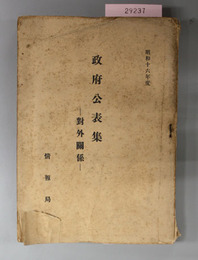 29237
昭和十六年度
政府公表集
―對外關係―
情報局